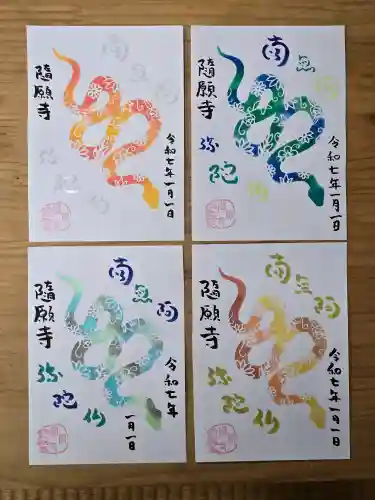 隨願寺
南
無
阿
弥
陀
仏
令和七年一月一日
隨願寺
南
無
阿
弥
陀
仏
令和七年一月一日
隨願寺
南
無
阿
弥
陀
仏
令和七年
一月一日
隨願寺
南
無
阿
弥
陀
仏
令和七年一月一日